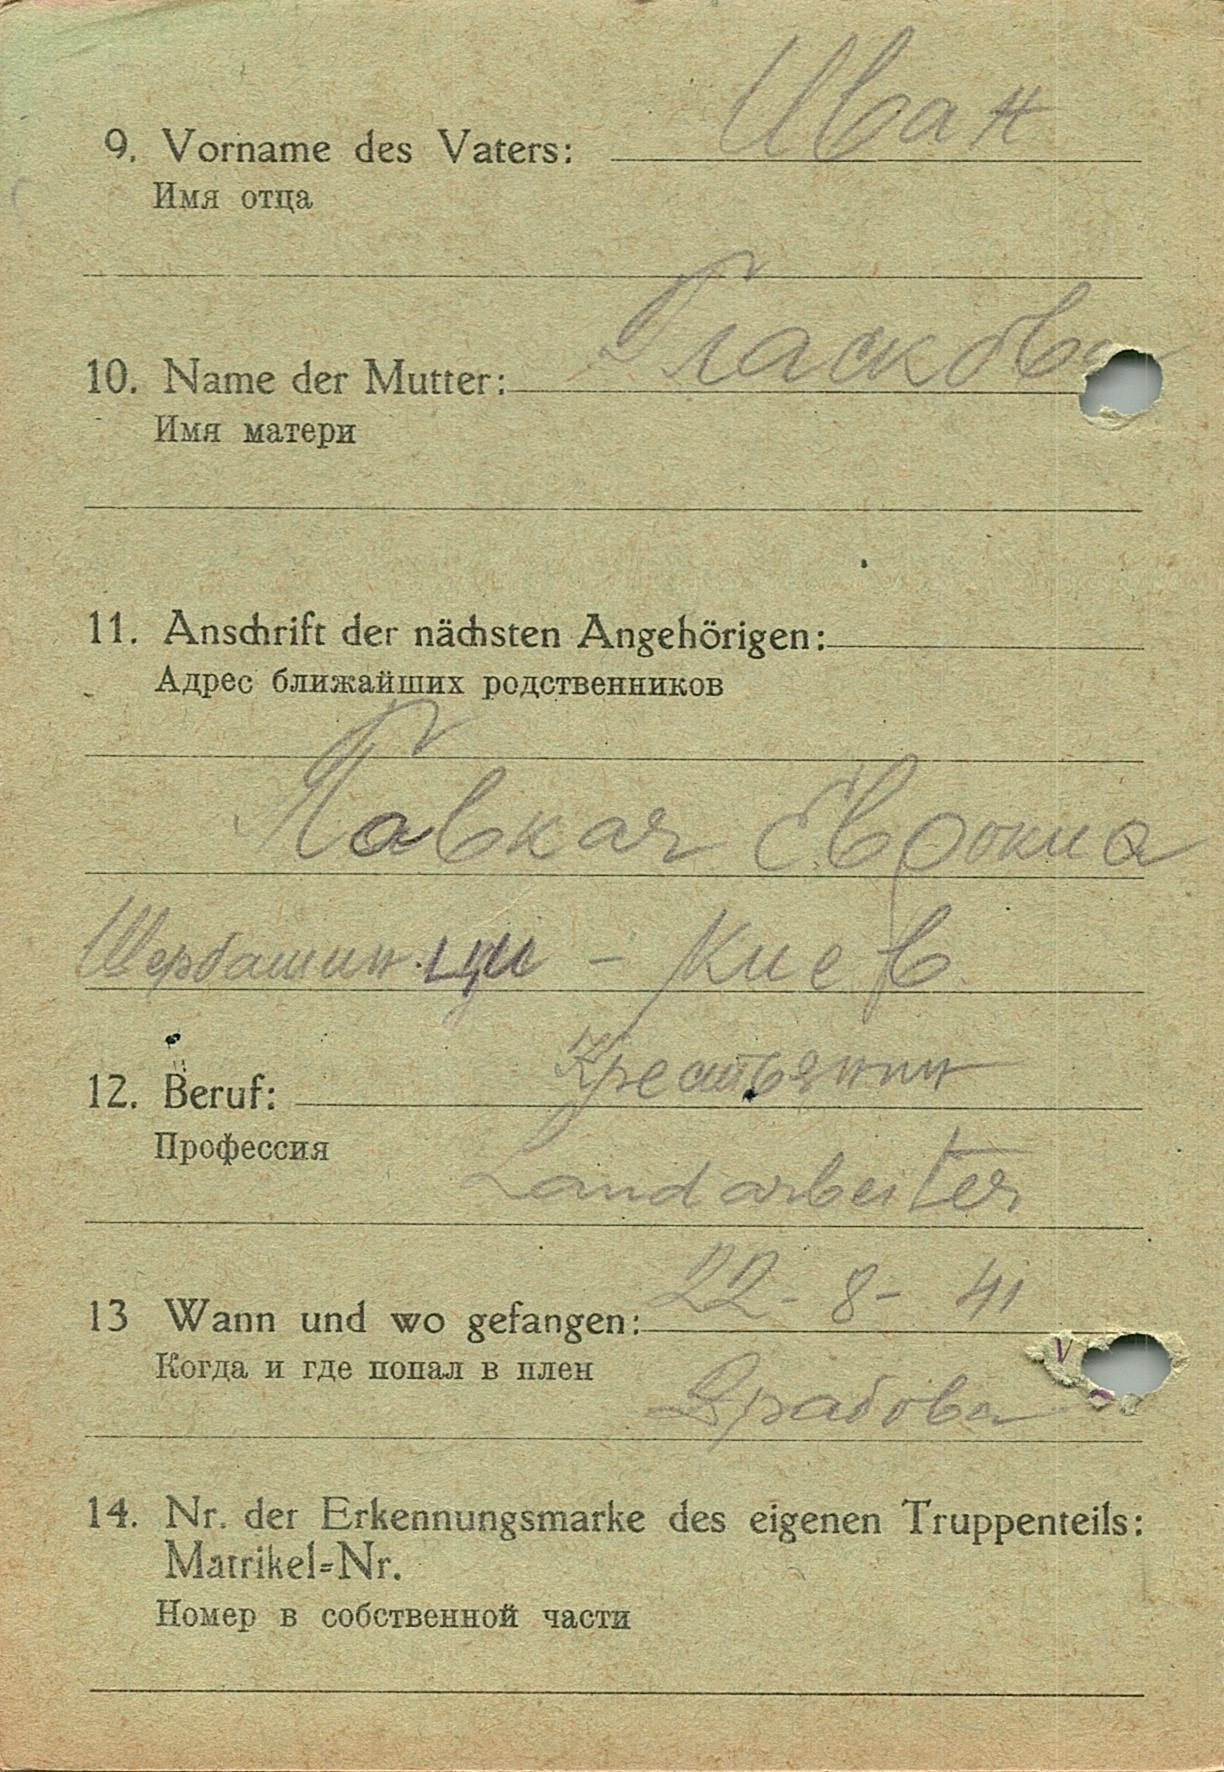 9. Vorname des Vaters: Иван
Имя отца
10. Name der Mutter:
Имя матери
11. Anschrift der nächsten Angehörigen:
Адрес ближайших родственников
Киев
12. Beruf: Крестьянин
Профессия
Landarbeiter
13 Wann und wo gefangen: 22-8-41
Когда и где попал в плен
14. Nr. der Erkennungsmarke des eigenen Truppenteils:
Matrikel=Nr.
Номер в собственной части